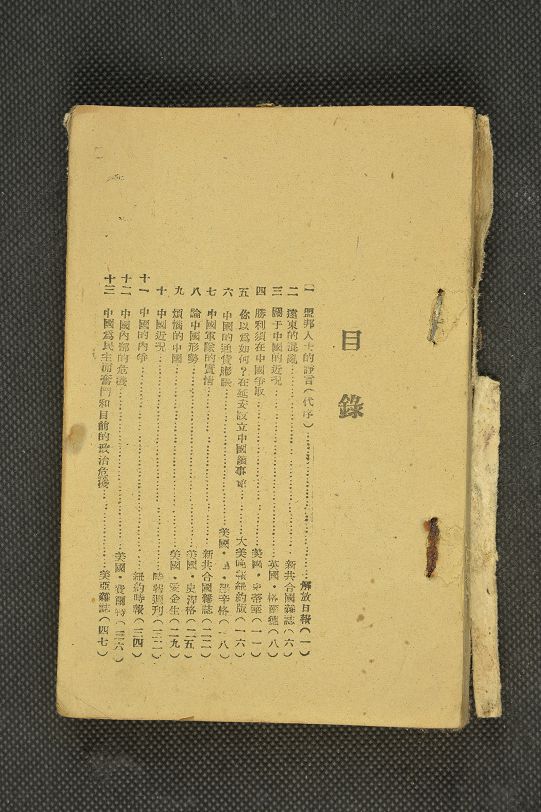 目錄
一 盟邦人士的諍言(代序)……解放日報(一)
二 遠東的混亂……新共合國雜誌(六)
三 關于中國的近況……英國·格蘭(八)
四 勝利須在中國爭取……美國·史蒂華(一一)
五 你以爲如何?在延安設立中國領事館……大美晚報紐約版(一六)
六 中國的通貨膨脹……美國·辛格(一八)
七 中國軍隊的實情……新共合國雜誌(二二)
八 論中國形勢……美國·史沫格(二五)
九 煩惱的中國……美國·愛金生(二九)
十 中國近況……時與週刊(三二)
十一 中國的內爭……紐約時報(三四)
十二 中國內部的危機……美國·賽爾特(三六)
十三 中國爲民主而奮鬥和目前的政治危機……美亞雜誌(四七)